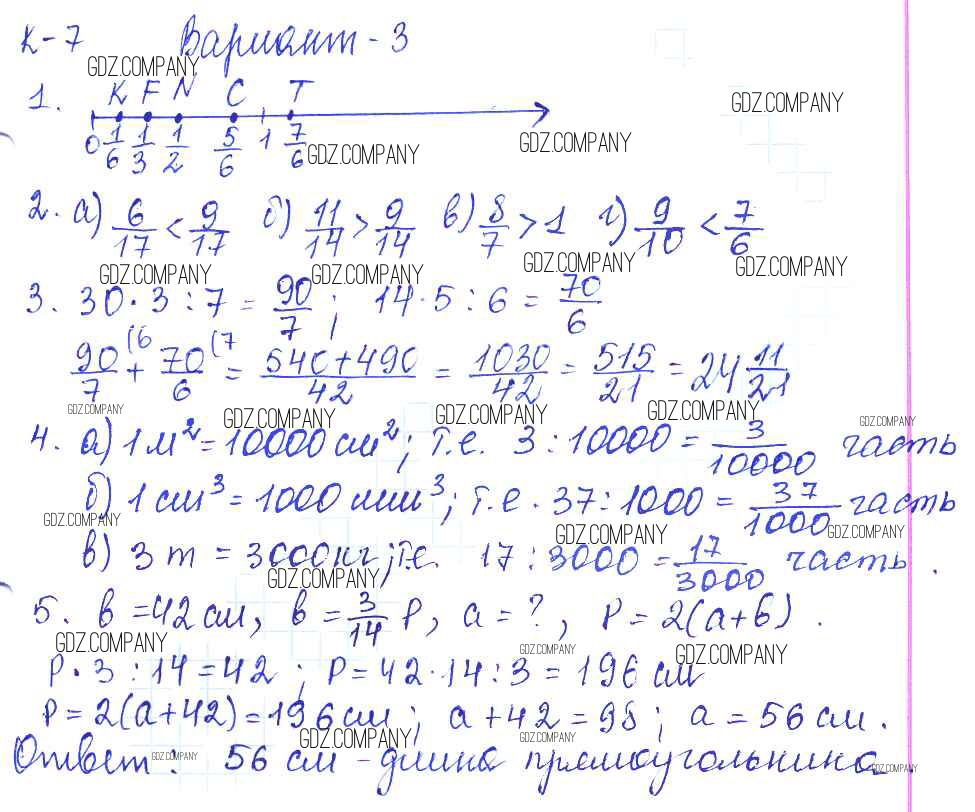 К-7 Вариант - 3
GDZ.COMPANY
1. K F N C T
GDZ.COMPANY
0 1/6 1/3 1/2 5/6 1 7/6
GDZ.COMPANY GDZ.COMPANY
2. а) 6/17 < 9/17 б) 11/14 > 9/14 в) 8/7 > 1 г) 9/10 < 7/6
GDZ.COMPANY GDZ.COMPANY GDZ.COMPANY GDZ.COMPANY
3. 30·3:7 = 90/7; 14·5:6 = 70/6
90/7 (6 + 70/6 (7 = 540+490/42 = 1030/42 = 515/21 = 24 11/21
GDZ.COMPANY GDZ.COMPANY GDZ.COMPANY GDZ.COMPANY GDZ.COMPANY
4. а) 1 м² = 10000 см²; т.е. 3 : 10000 = 3/10000 часть
б) 1 см³ = 1000 мм³; т.е. 37 : 1000 = 37/1000 часть
GDZ.COMPANY GDZ.COMPANY GDZ.COMPANY
в) 3 т = 3000 кг; т.е. 17 : 3000 = 17/3000 часть.
GDZ.COMPANY
5. в = 42 см, в = 3/14 P, a = ?, P = 2(a+в).
GDZ.COMPANY GDZ.COMPANY GDZ.COMPANY
P·3 : 14 = 42; P = 42·14:3 = 196 см
P = 2(a+42) = 196 см; a + 42 = 98; a = 56 см.
GDZ.COMPANY GDZ.COMPANY
Ответ: 56 см - длина прямоугольника.
GDZ.COMPANY GDZ.COMPANY